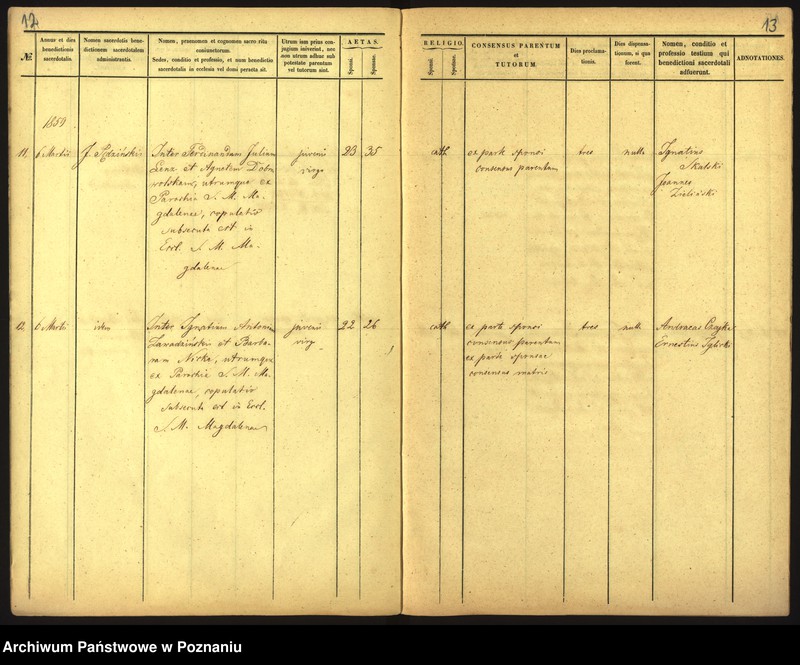 12
13
№
Annus et dies
benedictionis
sacerdotalis.
Nomen sacerdotis bene-
dictionem sacerdotalem
administrantis.
Nomen, praenomen et cognomen sacro ritu
coniunctorum.
Sedes, conditio et professio, et num benedictio
sacerdotalis in ecclesia vel domi peracta sit.
Utrum iam prius con-
jugium inierint, nec
non utrum adhuc sub
potestate parentum
vel tutorum sint.
AETAS.
Sponsi.
Sponsae.
RELIGIO.
Sponsi.
Sponsae.
CONSENSUS PARENTUM
et
TUTORUM.
Dies proclama-
tionis.
Dies dispensa-
tionum, si quae
fuerint.
Nomen, conditio et
professio testium qui
benedictioni sacerdotali
adfuerunt.
ADNOTATIONES.
1859
11.
6 Martii
J.
Inter Ferdinandum Julium
et Agnetem
utrumque ex
Parochia S. M. Ma-
gdalenae, copulatio
subsecuta est in
Eccl. S. M. Ma-
gdalenae
juvenis
virgo
23
35
cath
ex parte sponsi
consensus parentum
tres
nulla
Ignatius
Skalski
Joannes
Zieliński
12.
6 Martii
idem
Inter Ignatium Antonium
et Barba-
ram utrumque
ex Parochia S. M. Ma-
gdalenae, copulatio
subsecuta est in Eccl.
S. M. Magdalenae
juvenis
virg
22
26
cath
ex parte sponsi
consensus parentum
ex parte sponsae
consensus matris
tres
nulla
Andraeas
Ernestus
Archiwum Państwowe w Poznaniu